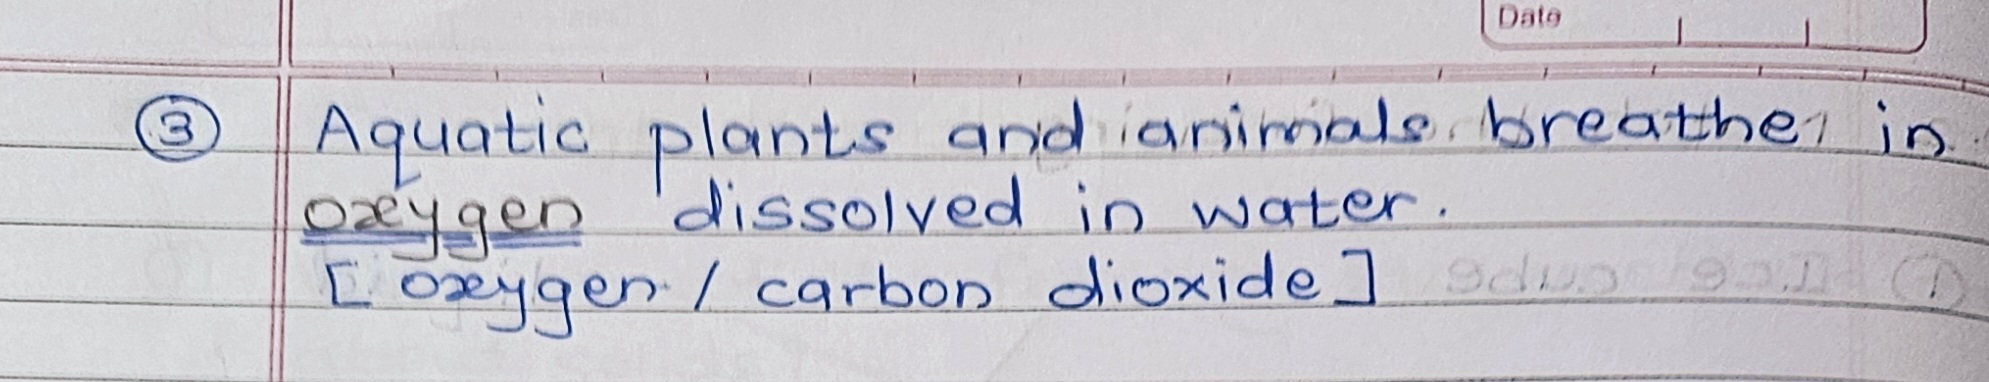 Date
③ Aquatic plants and animals breathe in
oxygen dissolved in water.
[oxygen / carbon dioxide]